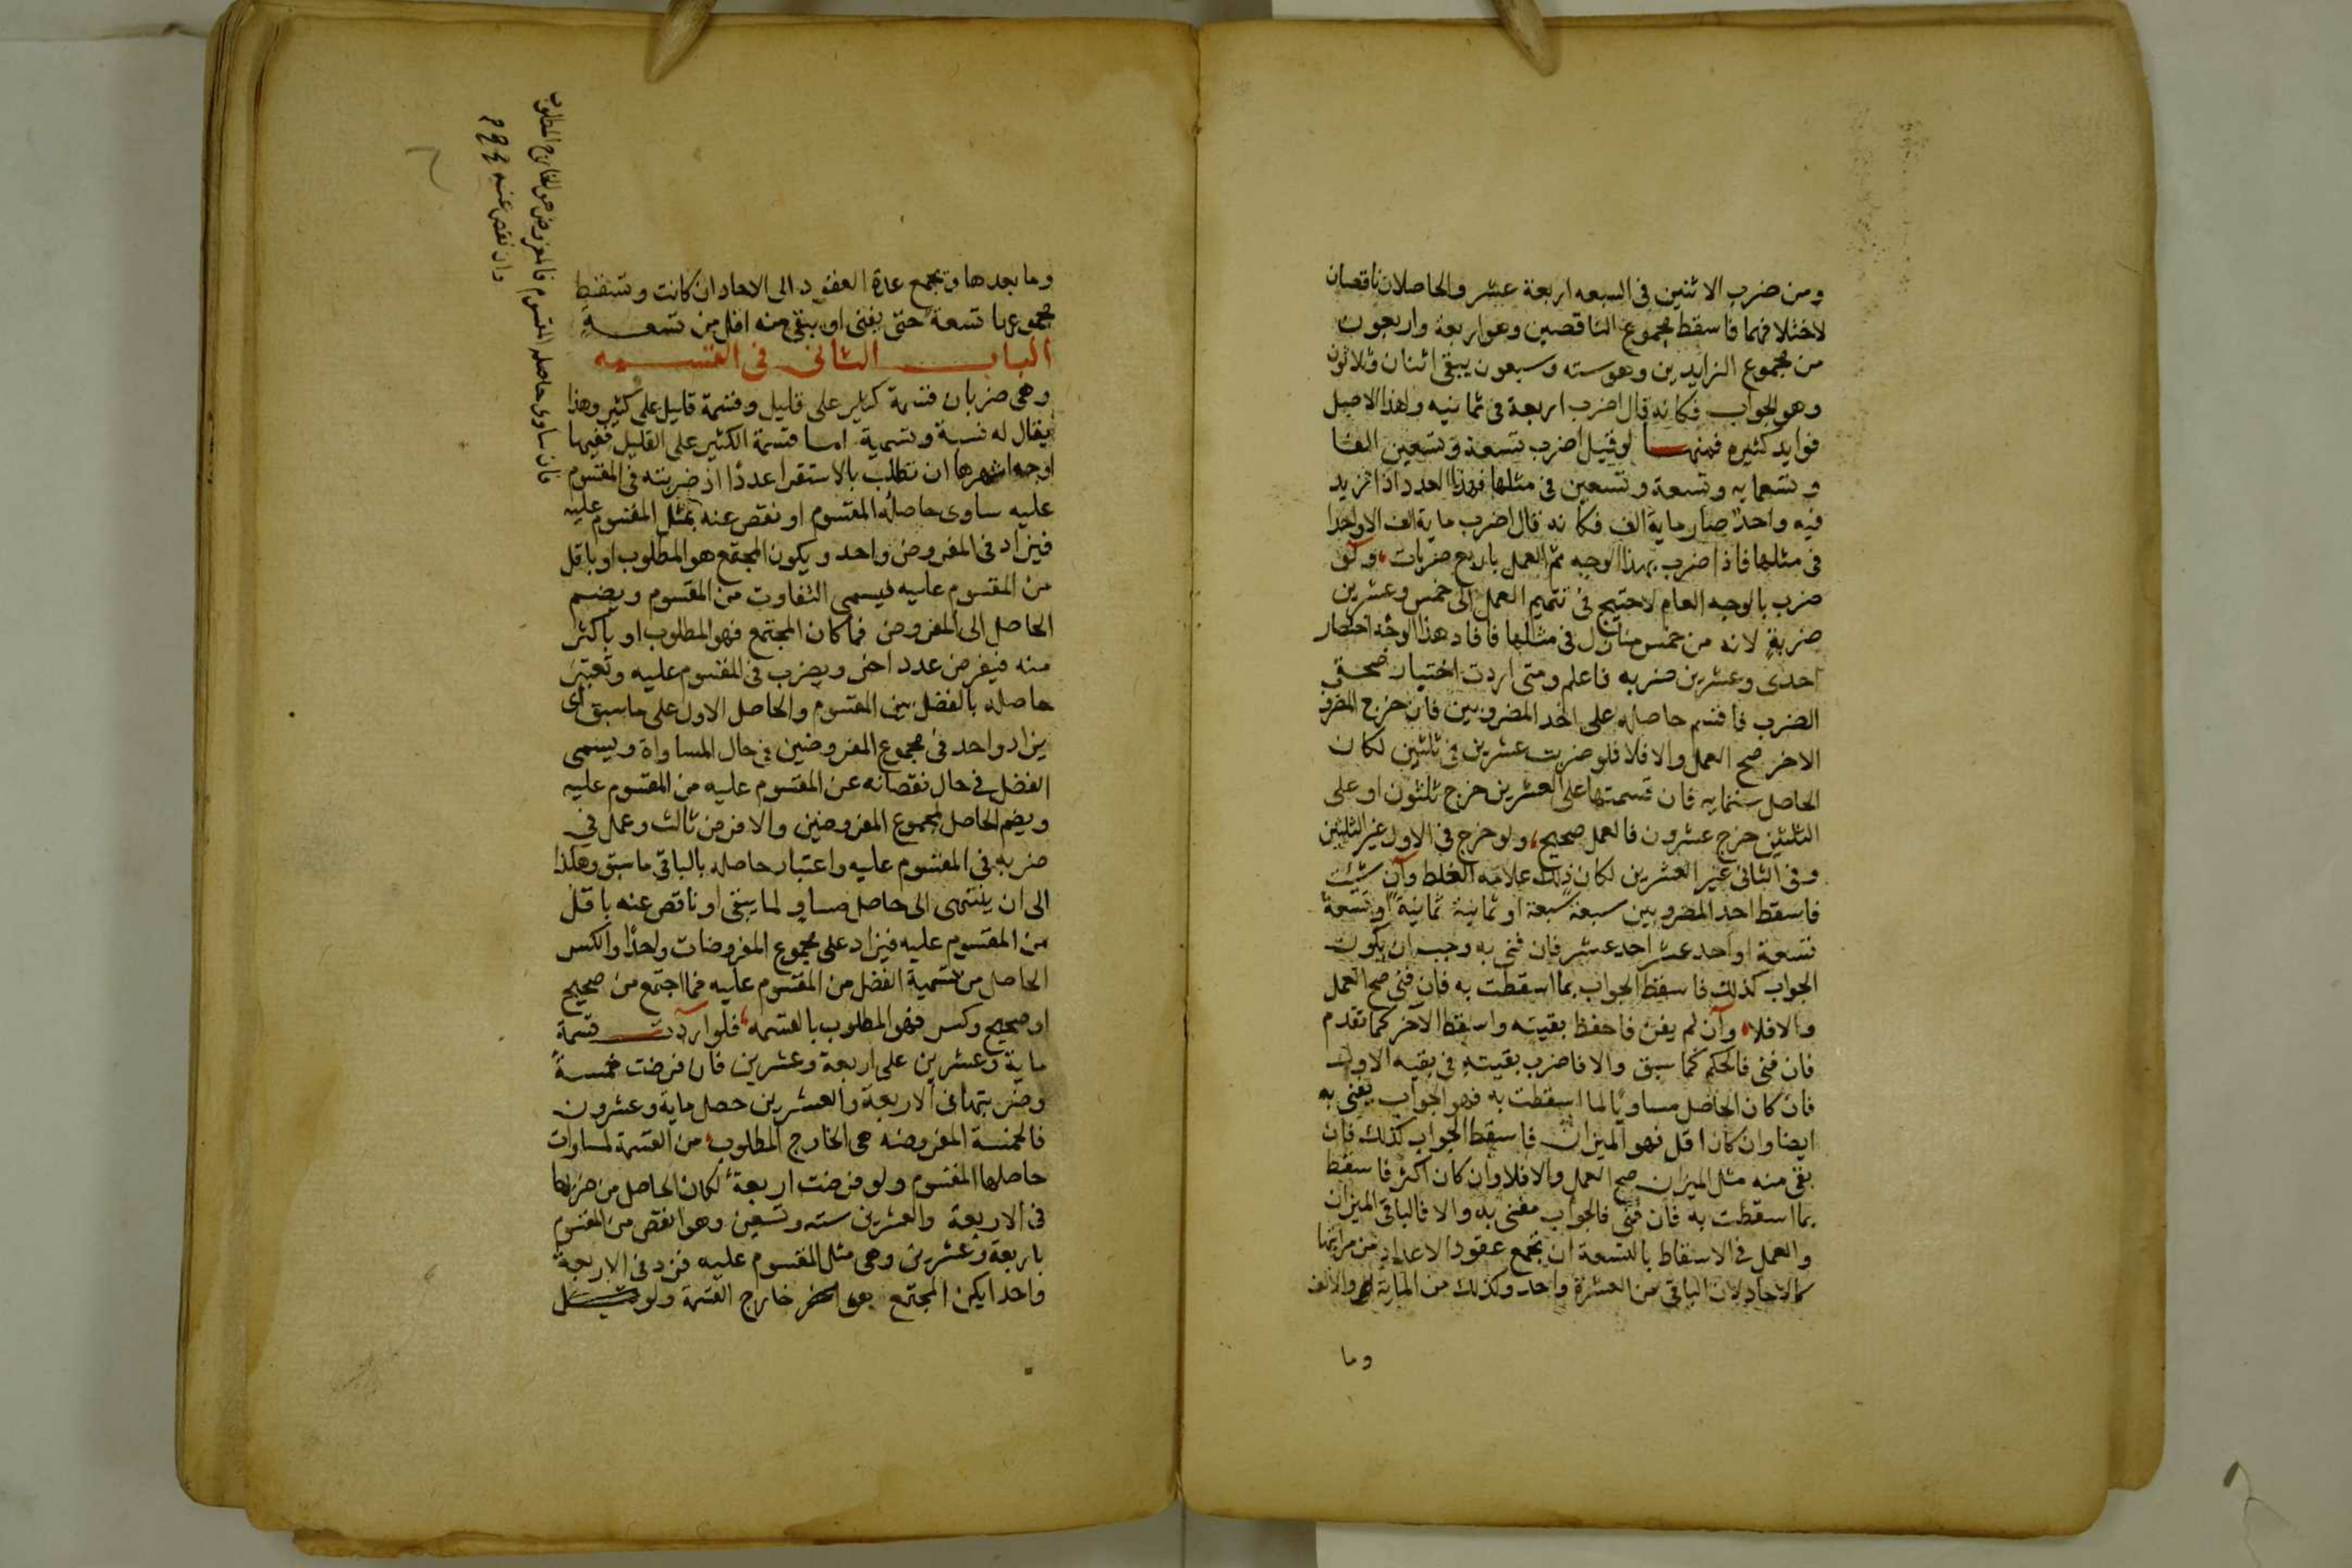 ومن ضرب الاثنين فى السبعه اربعة عشر والحاصلان ناقصان
لاختلافهما فاسقط مجموع الناقصين وهو اربعة واربعون
من مجموع الزايدين وهو سته وسبعون يبقى اثنان وثلاثون
وهو الجواب فكانه قال اضرب اربعة فى ثمانيه ولهذا الاصل
فوايد كثيره فمنها لو قيل اضرب تسعة وتسعين الفا
وتسعمايه وتسعة وتسعين فى مثلها فهذا العدد اذا زيد
فيه واحد صار ماية الف فكانه قال اضرب ماية الف الا واحدا
فى مثلها فاذا ضرب بهذا الوجه تم العمل باربع ضربات ولو
ضرب بالوجه العام لاحتيج فى تتميم العمل الى خمس وعشرين
ضربة لانه من خمس منازل فى مثلها فافاد هذا الوجه اختصار
احدى وعشرين ضربه فاعلم ومتى اردت اختبار صحة
الضرب فاقسم حاصله على احد المضروبين فان خرج المضروب
الاخر صح العمل والا فلا فلو ضربت عشرين فى ثلثين لكان
الحاصل ستمايه فان قسمتها على العشرين خرج ثلثون او على
الثلثين خرج عشرون فالعمل صحيح ولو خرج فى الاول غير الثلثين
وفى الثانى غير العشرين لكان ذلك علامة الغلط وان شئت
فاسقط احد المضروبين سبعة سبعة او ثمانية ثمانية او تسعة
تسعة او احد عشر احد عشر فان فنى به وجب ان يكون
الجواب كذلك فاسقط الجواب بما اسقطت به فان فنى صح العمل
والا فلا وان لم يفن فاحفظ بقيته واسقط الآخر كما تقدم
فان فنى فالحكم كما سبق والا فاضرب بقيته فى بقيه الاول
فان كان الحاصل مساويا لما اسقطت به فهو الجواب يفنى به
ايضا وان كان اقل فهو الميزان فاسقط الجواب كذلك فان
بقى منه مثل الميزان صح العمل والا فلا وان كان اكثر فاسقط
بما اسقطت به فان فنى فالجواب مفنى به والا فالباقى الميزان
والعمل فى الاسقاط بالتسعة ان تجمع عقود الاعداد من مراتبها
كالاحاد لان الباقى من العشرة واحد وكذلك من الماية والالف
وما
وما بعدها وتجمع عدة العقود الى الاحاد ان كانت وتسقط
مجموعها تسعة حتى يفنى او يبقى منه اقل من تسعة
الباب الثانى فى القسمه
وهى ضربان قسمة كثير على قليل وقسمة قليل على كثير وهذا
يقال له نسبة وتسمية اما قسمة الكثير على القليل ففيها
اوجه اشهرها ان تطلب بالاستقرا عددا اذ ضربته فى المقسوم
عليه ساوى حاصله المقسوم او نقص عنه بمثل المقسوم عليه
فيزاد فى المفروض واحد ويكون المجتمع هو المطلوب او باقل
من المقسوم عليه فيسمى التفاوت من المقسوم ويضم
الحاصل الى المفروض فما كان المجتمع فهو المطلوب او باكثر
منه فيفرض عدد اخر ويضرب فى المقسوم عليه وتعتبر
حاصله بالفضل بين المقسوم والحاصل الاول على ما سبق اى
يزاد واحد فى مجموع المفروضين فى حال المساواة ويسمى
الفضل فى حال نقصانه عن المقسوم عليه من المقسوم عليه
ويضم الحاصل لمجموع المفروضين والا فرض ثالث وعمل فى
ضربه فى المقسوم عليه واعتبار حاصله بالباقى ما سبق وهكذا
الى ان ينتهى الى حاصل مساو لما يبقى او ناقص عنه باقل
من المقسوم عليه فيزاد على مجموع المفروضات واحدا والكسر
الحاصل من تسمية الفضل من المقسوم عليه فما اجتمع من صحيح
او صحيح وكسر فهو المطلوب بالقسمه فلو اردت قسمة
ماية وعشرين على اربعة وعشرين فان فرضت خمسة
وضربتها فى الاربعة والعشرين حصل ماية وعشرون
فالخمسة المفروضه هى الخارج المطلوب من القسمة لمساوات
حاصلها المقسوم ولو فرضت اربعة لكان الحاصل من ضربها
فى الاربعة والعشرين سته وتسعين وهو انقص من المقسوم
باربعة وعشرين وهى مثل المقسوم عليه فزد فى الاربعة
واحدا يكن المجتمع هو خارج القسمة ولو
فان ساوى حاصله المقسوم فالمفروض هو الخارج المطلوب
وان نقص عنه